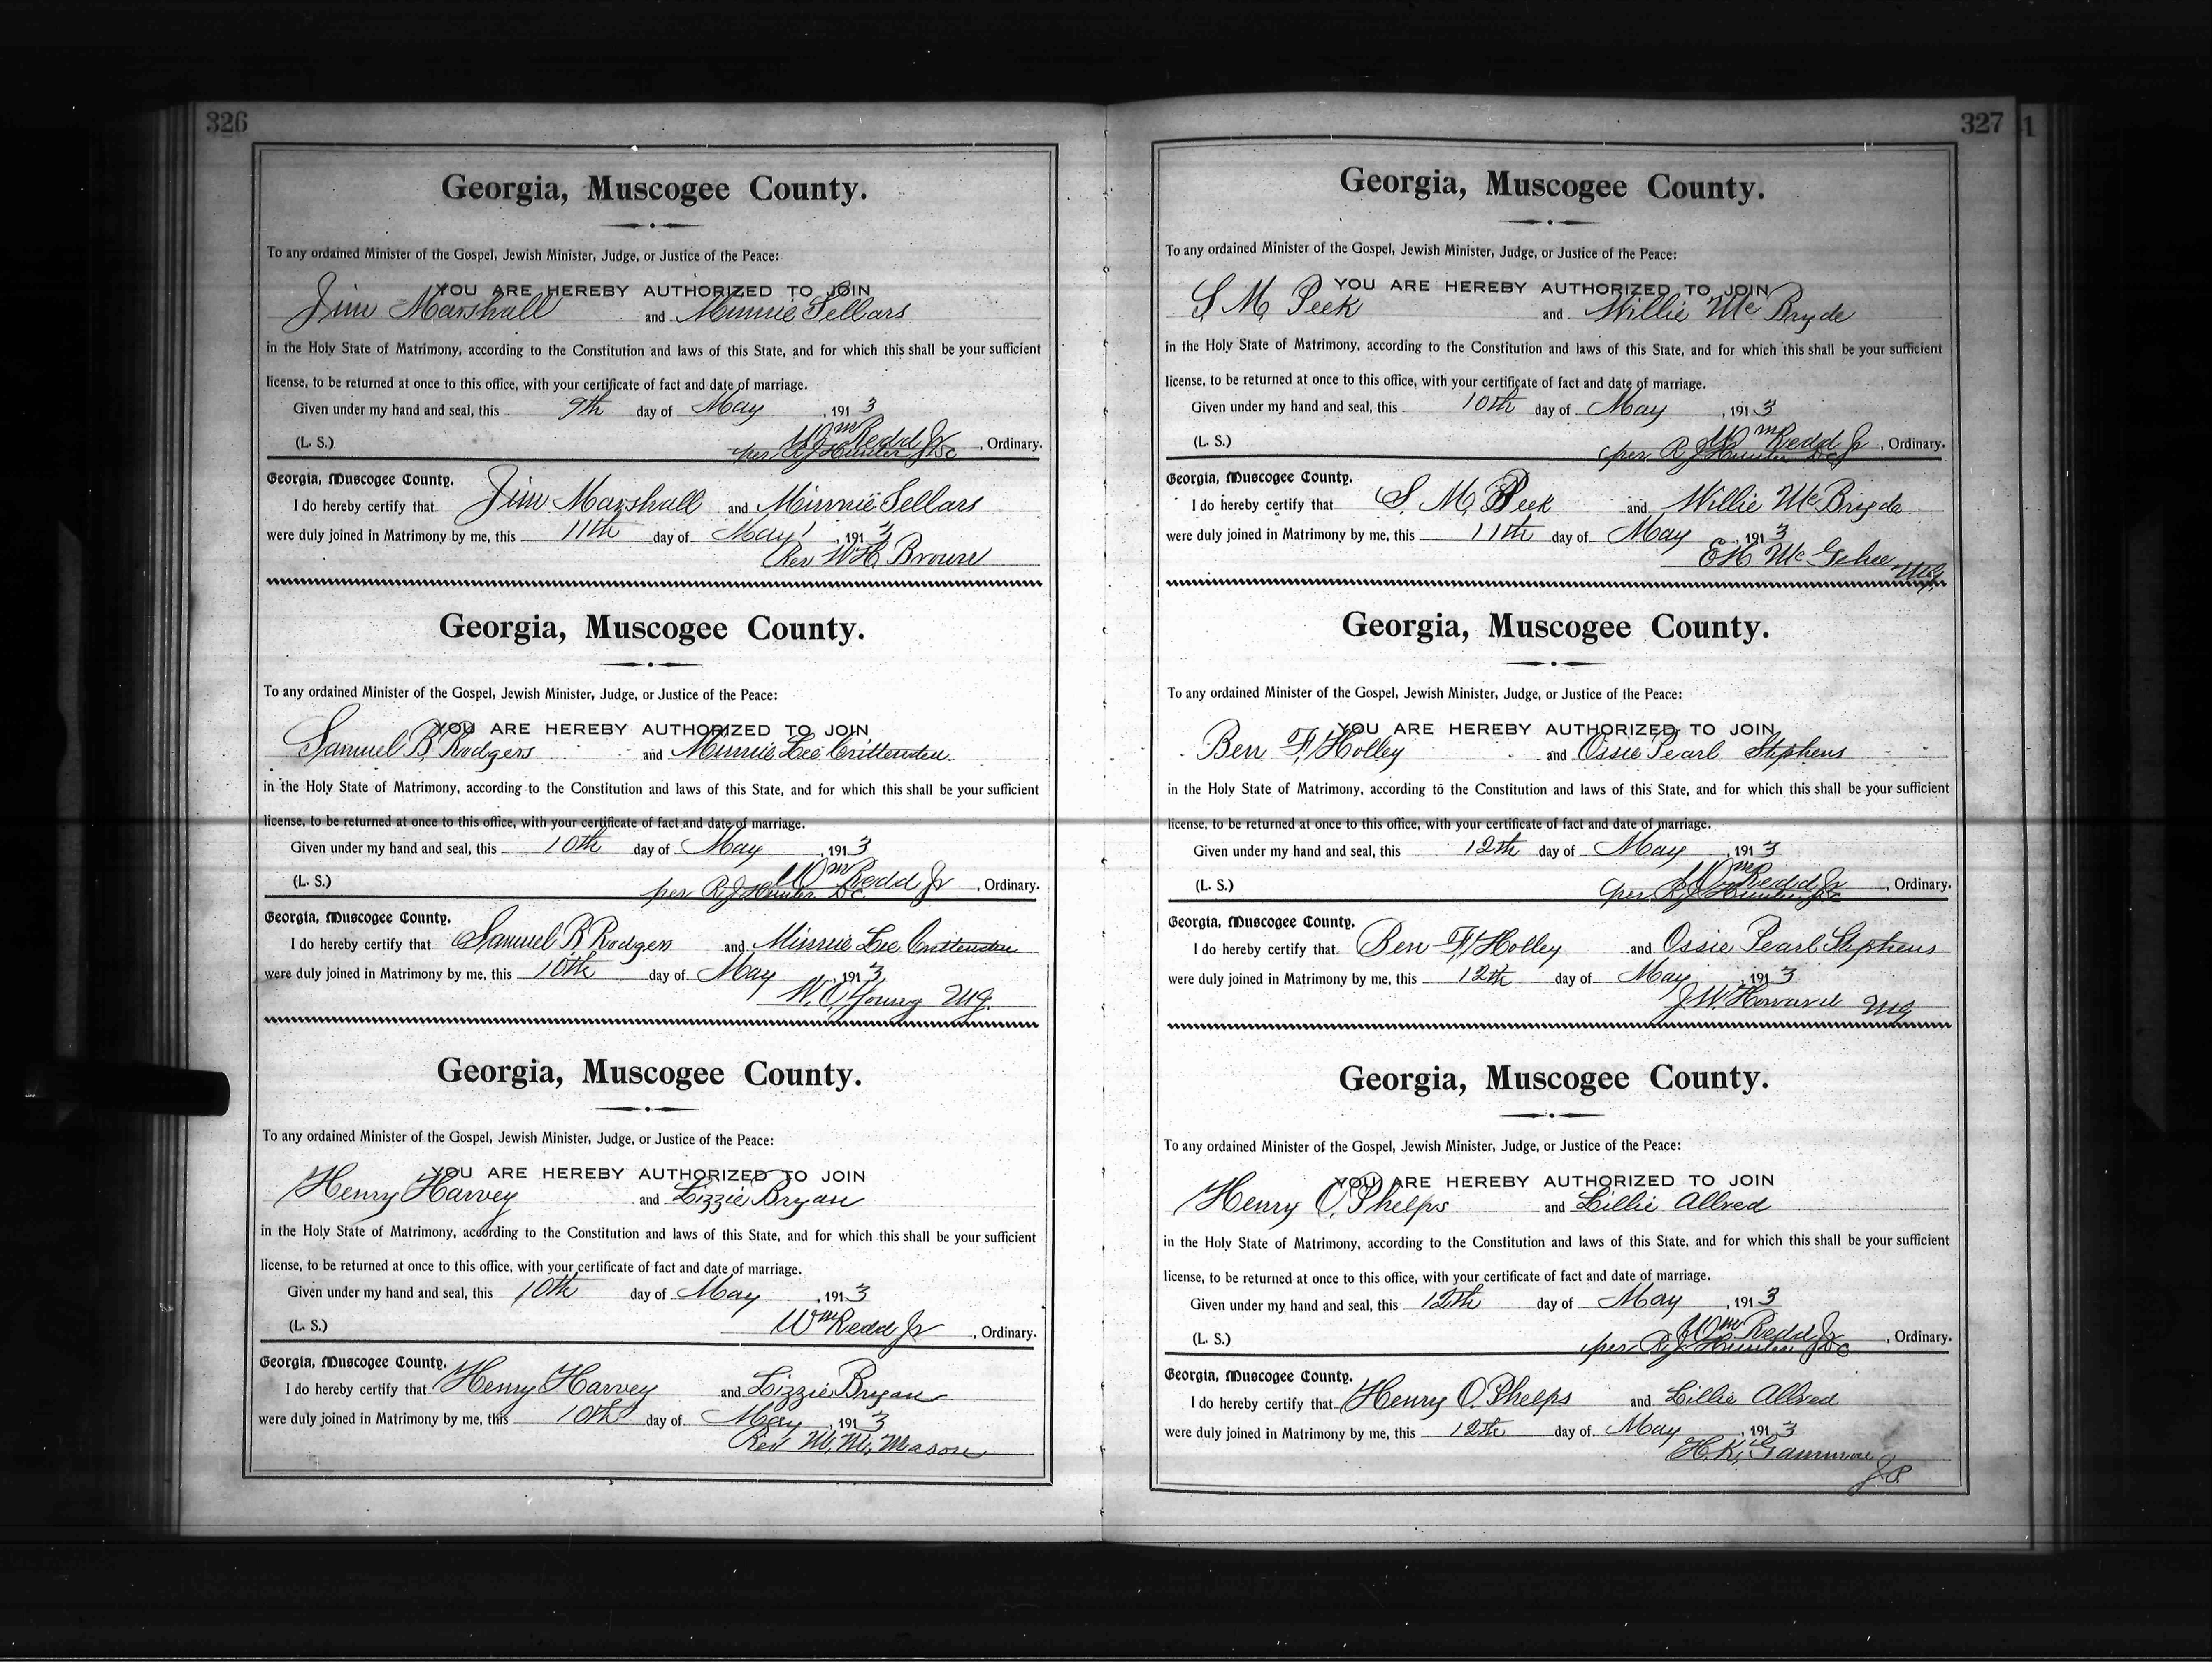 326
Georgia, Muscogee County.
To any ordained Minister of the Gospel, Jewish Minister, Judge, or Justice of the Peace:
YOU ARE HEREBY AUTHORIZED TO JOIN
Jim Marshall and Minnie Sellars
in the Holy State of Matrimony, according to the Constitution and laws of this State, and for which this shall be your sufficient
license, to be returned at once to this office, with your certificate of fact and date of marriage.
Given under my hand and seal, this 9th day of May, 1913
(L. S.) Wm Redd Jr, Ordinary.
per R J Hunter D.C.
Georgia, Muscogee County.
I do hereby certify that Jim Marshall and Minnie Sellars
were duly joined in Matrimony by me, this 11th day of May, 1913
Rev W H Brown
Georgia, Muscogee County.
To any ordained Minister of the Gospel, Jewish Minister, Judge, or Justice of the Peace:
YOU ARE HEREBY AUTHORIZED TO JOIN
Samuel B. Rodgers and Minnie Lee Crittenden
in the Holy State of Matrimony, according to the Constitution and laws of this State, and for which this shall be your sufficient
license, to be returned at once to this office, with your certificate of fact and date of marriage.
Given under my hand and seal, this 10th day of May, 1913
(L. S.) Wm Redd Jr, Ordinary.
per R J Hunter D.C.
Georgia, Muscogee County.
I do hereby certify that Samuel B Rodgers and Minnie Lee Crittenden
were duly joined in Matrimony by me, this 10th day of May, 1913
Young M.G.
Georgia, Muscogee County.
To any ordained Minister of the Gospel, Jewish Minister, Judge, or Justice of the Peace:
YOU ARE HEREBY AUTHORIZED TO JOIN
Henry Harvey and Lizzie Bryan
in the Holy State of Matrimony, according to the Constitution and laws of this State, and for which this shall be your sufficient
license, to be returned at once to this office, with your certificate of fact and date of marriage.
Given under my hand and seal, this 10th day of May, 1913
(L. S.) Wm Redd Jr, Ordinary.
Georgia, Muscogee County.
I do hereby certify that Henry Harvey and Lizzie Bryan
were duly joined in Matrimony by me, this 10th day of May, 1913
Rev M. M. Mason
327 1
Georgia, Muscogee County.
To any ordained Minister of the Gospel, Jewish Minister, Judge, or Justice of the Peace:
YOU ARE HEREBY AUTHORIZED TO JOIN
S. M. Peek and Willie McBryde
in the Holy State of Matrimony, according to the Constitution and laws of this State, and for which this shall be your sufficient
license, to be returned at once to this office, with your certificate of fact and date of marriage.
Given under my hand and seal, this 10th day of May, 1913
(L. S.) Wm Redd Jr, Ordinary.
per R J Hunter D.C.
Georgia, Muscogee County.
I do hereby certify that S. M. Peek and Willie McBryde
were duly joined in Matrimony by me, this 11th day of May, 1913
E H McGehee M.G.
Georgia, Muscogee County.
To any ordained Minister of the Gospel, Jewish Minister, Judge, or Justice of the Peace:
YOU ARE HEREBY AUTHORIZED TO JOIN
Ben F. Holley and Ossie Pearl Stephens
in the Holy State of Matrimony, according to the Constitution and laws of this State, and for which this shall be your sufficient
license, to be returned at once to this office, with your certificate of fact and date of marriage.
Given under my hand and seal, this 12th day of May, 1913
(L. S.) Wm Redd Jr, Ordinary.
per R J Hunter D.C.
Georgia, Muscogee County.
I do hereby certify that Ben F. Holley and Ossie Pearl Stephens
were duly joined in Matrimony by me, this 12th day of May, 1913
J. W. Howard M.G.
Georgia, Muscogee County.
To any ordained Minister of the Gospel, Jewish Minister, Judge, or Justice of the Peace:
YOU ARE HEREBY AUTHORIZED TO JOIN
Henry O. Phelps and Lillie Allred
in the Holy State of Matrimony, according to the Constitution and laws of this State, and for which this shall be your sufficient
license, to be returned at once to this office, with your certificate of fact and date of marriage.
Given under my hand and seal, this 12th day of May, 1913
(L. S.) Wm Redd Jr, Ordinary.
per R J Hunter D.C.
Georgia, Muscogee County.
I do hereby certify that Henry O. Phelps and Lillie Allred
were duly joined in Matrimony by me, this 12th day of May, 1913
H. K. Gammon
J.P.